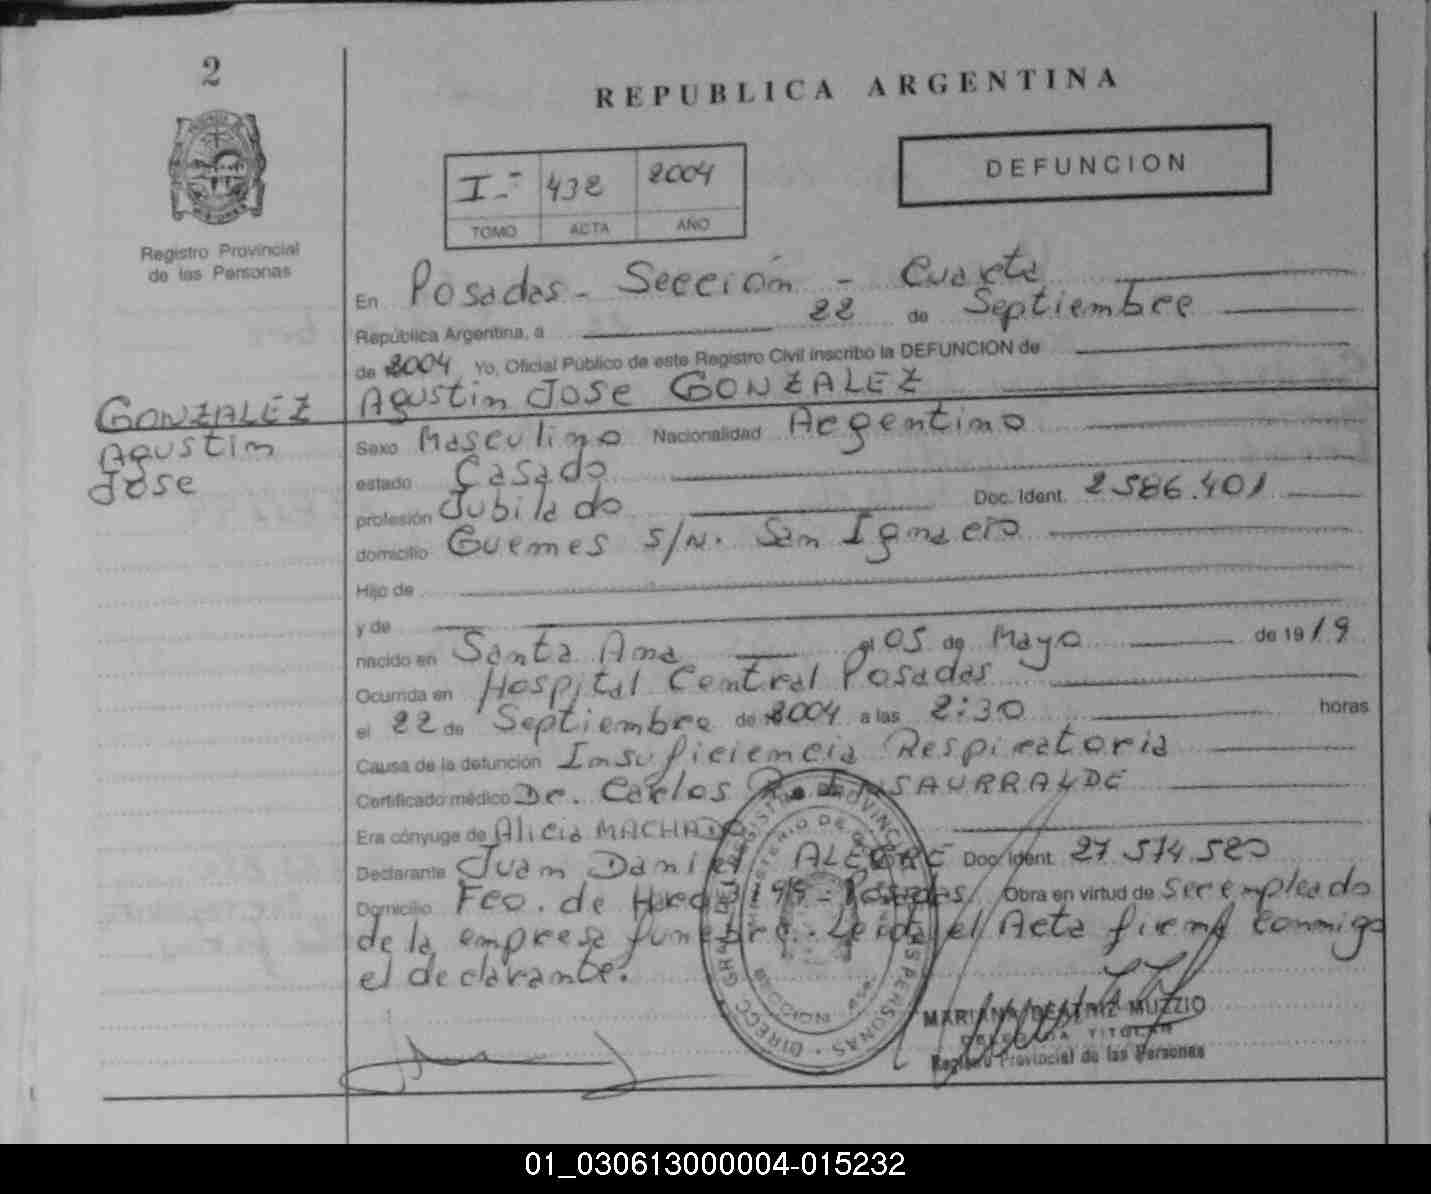 2
REPUBLICA ARGENTINA
Registro Provincial
de las Personas
I.- 432 2004
TOMO ACTA AÑO
DEFUNCION
En Posadas - Sección - Cuarta
República Argentina, a 22 de Septiembre
de 2004 Yo, Oficial Público de este Registro Civil inscribo la DEFUNCION de
GONZALEZ
Agustin
Jose
Agustin Jose GONZALEZ
Sexo Masculino Nacionalidad Argentino
estado Casado
profesión Jubilado Doc. Ident. 2.586.401
domicilio Guemes S/N. San Ignacio
Hijo de
y de
nacido en Santa Ana el 05 de Mayo de 1919
Ocurrida en Hospital Central Posadas
el 22 de Septiembre de 2004 a las 2:30 horas
Causa de la defunción Insuficiencia Respiratoria
Certificado médico Dr. Carlos INSAURRALDE
Era cónyuge de Alicia MACHADO
Declarante Juan Daniel ALEGRE Doc. Ident. 27.574.520
Domicilio Fco. de Haro Posadas Obra en virtud de Ser empleado
de la empresa funebre. Leida el Acta firma conmigo
el declarante.
MARIANA BEATRIZ MUZZIO
DELEGADA TITULAR
Registro Provincial de las Personas
01_030613000004-015232